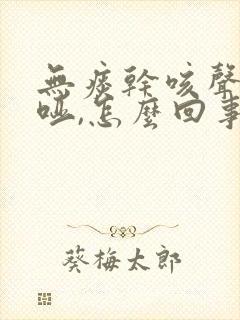 無痰幹咳聲
啞,怎麼回事
葵梅太郎